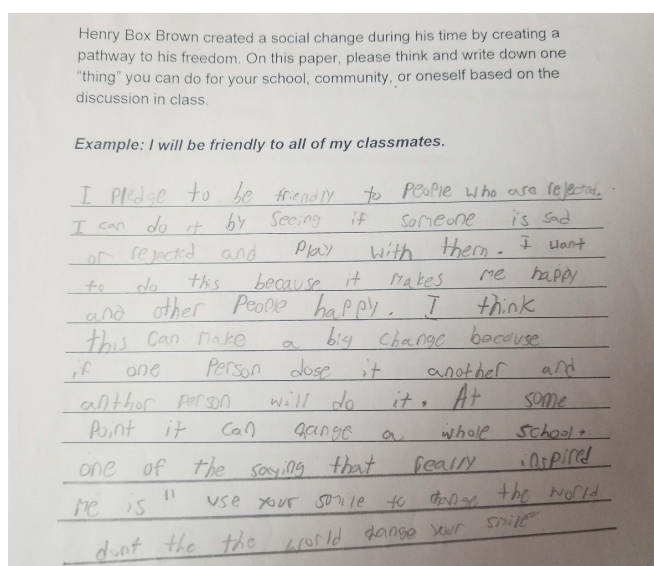 Henry Box Brown created a social change during his time by creating a
pathway to his freedom. On this paper, please think and write down one
"thing" you can do for your school, community, or oneself based on the
discussion in class.
Example: I will be friendly to all of my classmates.
I pledge to be friendly to people who are rejected.
I can do it by seeing if someone is sad
or rejected and play with them. I want
to do this because it makes me happy
and other people happy. I think
this can make a big change because
if one person dose it another and
anthor person will do it. At some
point it can gange a whole school.
one of the saying that really inspired
me is " use your smile to change the world
dont the the world dange your smile"